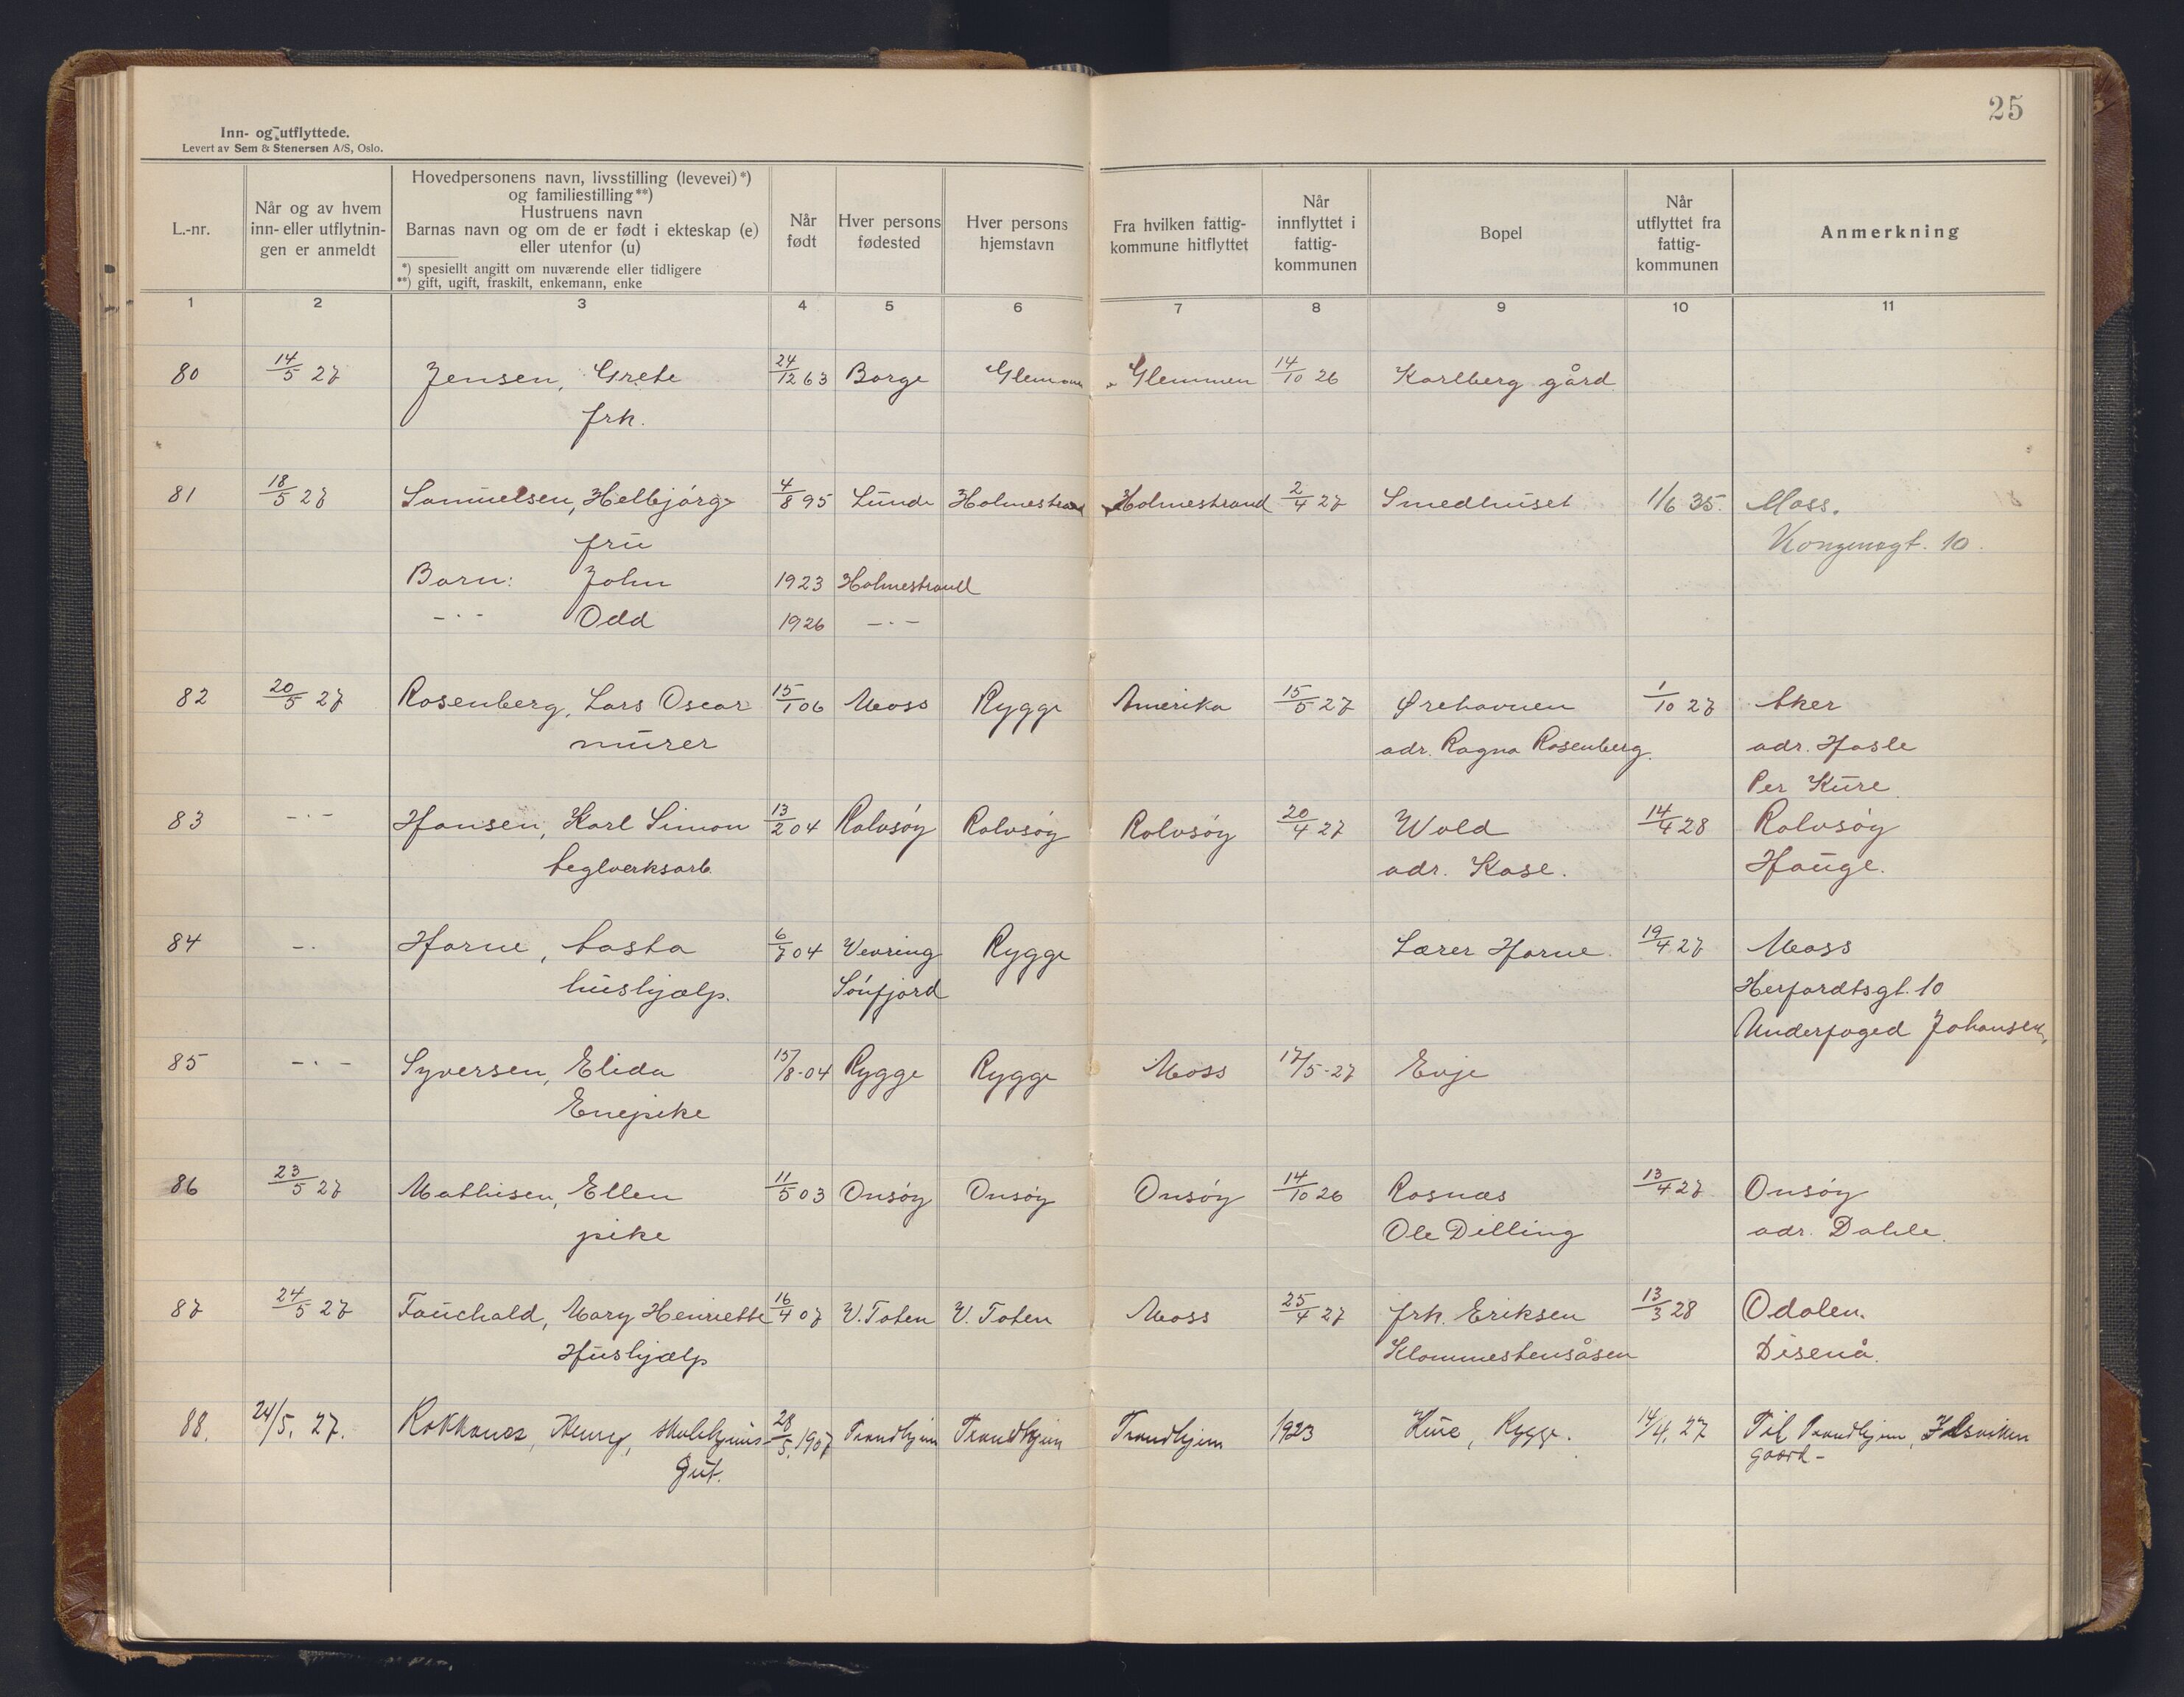 25
Inn- og utflyttede.
Levert av Sem & Stenersen A/S, Oslo.
L.-nr.
Når og av hvem
inn- eller utflytnin-
gen er anmeldt
Hovedpersonens navn, livsstilling (levevei) *)
og familiestilling **)
Hustruens navn
Barnas navn og om de er født i ekteskap (e)
eller utenfor (u)
*) spesiellt angitt om nuværende eller tidligere
**) gift, ugift, fraskilt, enkemann, enke
Når
født
Hver persons
fødested
Hver persons
hjemstavn
Fra hvilken fattig-
kommune hitflyttet
Når
innflyttet i
fattig-
kommunen
Bopel
Når
utflyttet fra
fattig-
kommunen
Anmerkning
1 2 3 4 5 6 7 8 9 10 11
80 14/5 27 Jensen, Grete 24/12 63 Borge Glemmen Glemmen 14/10 26 Karlberg gård
frk.
81 18/5 27 Samuelsen, Helbjørg 4/8 95 Lunde Holmestrand Holmestrand 2/4 27 Smedhuset 1/6 35. Moss.
fru Kongensgt. 10.
Barn: John 1923 Holmestrand
-"- Odd 1926 -"-
82 20/5 27 Rosenberg, Lars Oscar 15/1 06 Moss Rygge Amerika 15/5 27 Ørehavnen 1/10 27 Aker
murer adr. Ragna Rosenberg. adr. Hasle
Per Kure
83 -"- Hansen, Karl Simon 13/2 04 Rolvsøy Rolvsøy Rolvsøy 20/4 27 Wold 14/4 28 Rolvsøy
teglverksarb. adr. Kase. Hauge.
84 -"- Horne, Aasta 6/7 04 Vevring Rygge Lærer Horne 19/4 27 Moss
hushjælp. Sönfjord Herfordtsgt. 10
Underfoged Johansen,
85 -"- Syversen, Elida 15/8-04 Rygge Rygge Moss 17/5-27 Evje
Enepike
86 23/5 27 Mathisen, Ellen 11/5 03 Onsøy Onsøy Onsøy 14/10 26 Rosnæs 13/4 27 Onsøy
pike Ole Dilling adr. Dahle.
87 24/5 27 Fauchald, Mary Henriette 16/4 07 V. Toten V. Toten Moss 25/4 27 frk. Eriksen 13/3 28 Odalen.
Hushjælp Klommestensåsen Disenå.
88. 24/5. 27. Henry, 28/5. 1907 Trondhjem Trondhjem Trondhjem 1923 Kure, Rygge. 14/4. 27 Til Trondhjem, Ilsviken
Gut. gaard -